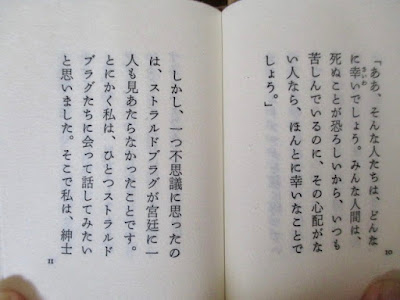 「ああ、そんな人たちは、どんな
に幸いでしょう。みんな人間は、
さいわ
死ぬことが恐ろしいから、いつも
苦しんでいるのに、その心配がな
い人なら、ほんとに幸いなことで
しょう。」
10
しかし、一つ不思議に思ったの
は、ストラルドブラグが宮廷に一
人も見あたらなかったことです。
とにかく私は、ひとつストラルド
ブラグたちに会って話してみたい
と思いました。そこで私は、紳士
11